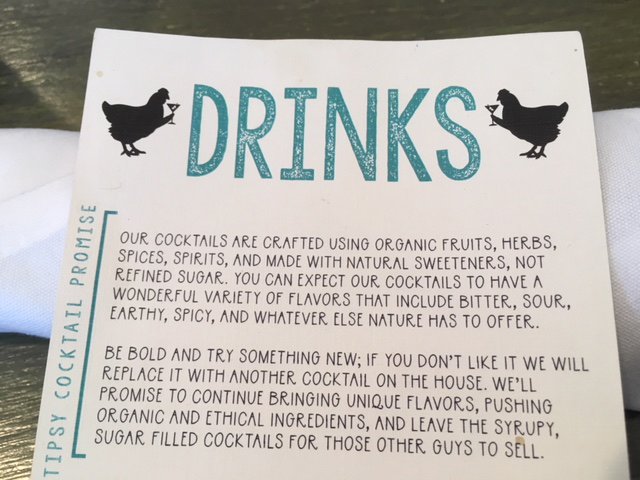 DRINKS
TIPSY COCKTAIL PROMISE
OUR COCKTAILS ARE CRAFTED USING ORGANIC FRUITS, HERBS,
SPICES, SPIRITS, AND MADE WITH NATURAL SWEETENERS, NOT
REFINED SUGAR. YOU CAN EXPECT OUR COCKTAILS TO HAVE A
WONDERFUL VARIETY OF FLAVORS THAT INCLUDE BITTER, SOUR,
EARTHY, SPICY, AND WHATEVER ELSE NATURE HAS TO OFFER.
BE BOLD AND TRY SOMETHING NEW; IF YOU DON'T LIKE IT WE WILL
REPLACE IT WITH ANOTHER COCKTAIL ON THE HOUSE. WE'LL
PROMISE TO CONTINUE BRINGING UNIQUE FLAVORS, PUSHING
ORGANIC AND ETHICAL INGREDIENTS, AND LEAVE THE SYRUPY,
SUGAR FILLED COCKTAILS FOR THOSE OTHER GUYS TO SELL.